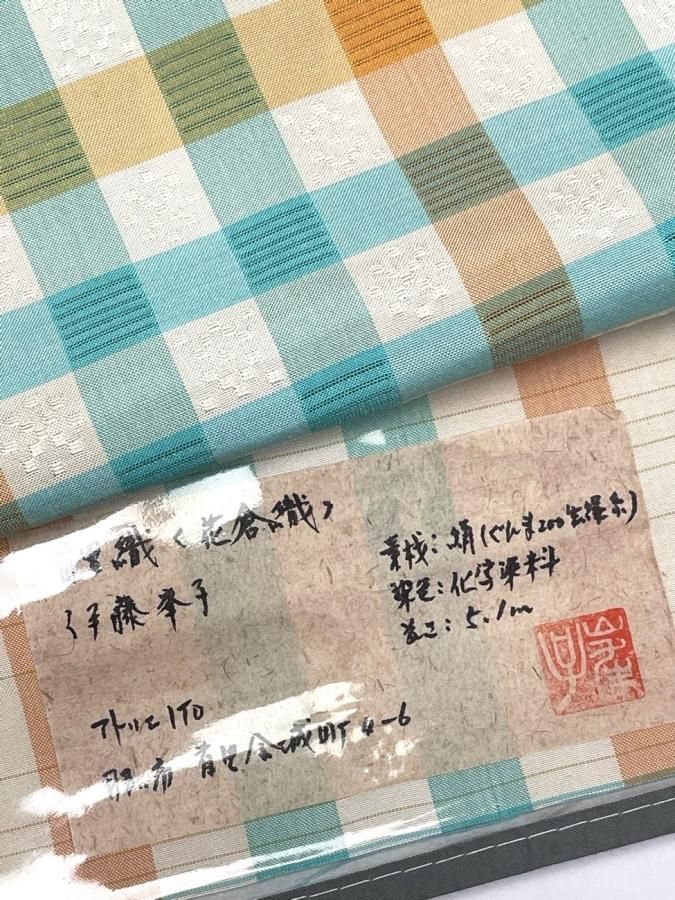 織〈花倉織〉
伊藤峯子
素材：絹(ぐんま200生繰糸)
染色：化学染料
長さ：5.1m
アトリエITO
那覇市 首里金城町4-6